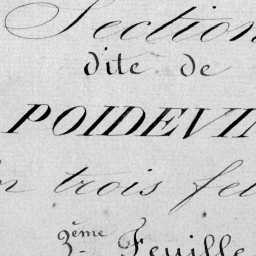 Section
dite de
POIDEVIN
en trois feu
3ème Feuille